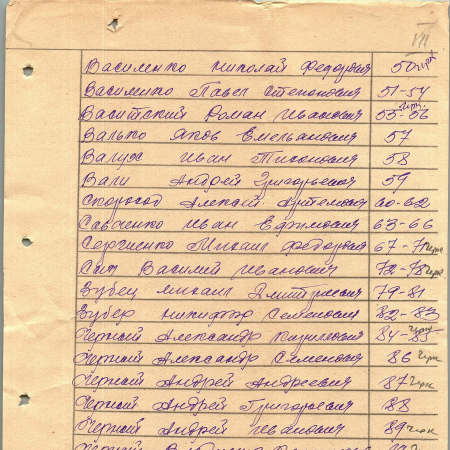 VII
Василенко Николай Федорович 50 чрк
Василенко Павел Степанович 51-54
Васитский Роман Иванович 55-56 чрк.
Валько Яков Емельянович 57
Валух Иван Тихонович 58
Вали Андрей Григорьевич 59
Скороход Алексей Артемович 60-62
Савченко Иван Ефимович 63-66
Сергиенко Михаил Федорович 67-71 чрк
Сыч Василий Иванович 72-78 чрк
Зубец Михаил Дмитриевич 79-81
Зубер Никифор Семенович 82-83
Черный Александр Кириллович 84-85 чрк
Черный Александр Семенович 86 чрк
Черный Андрей Андреевич 87 чрк
Черный Андрей Григорьевич 88
Черный Андрей Иванович 89 чрк
Черный